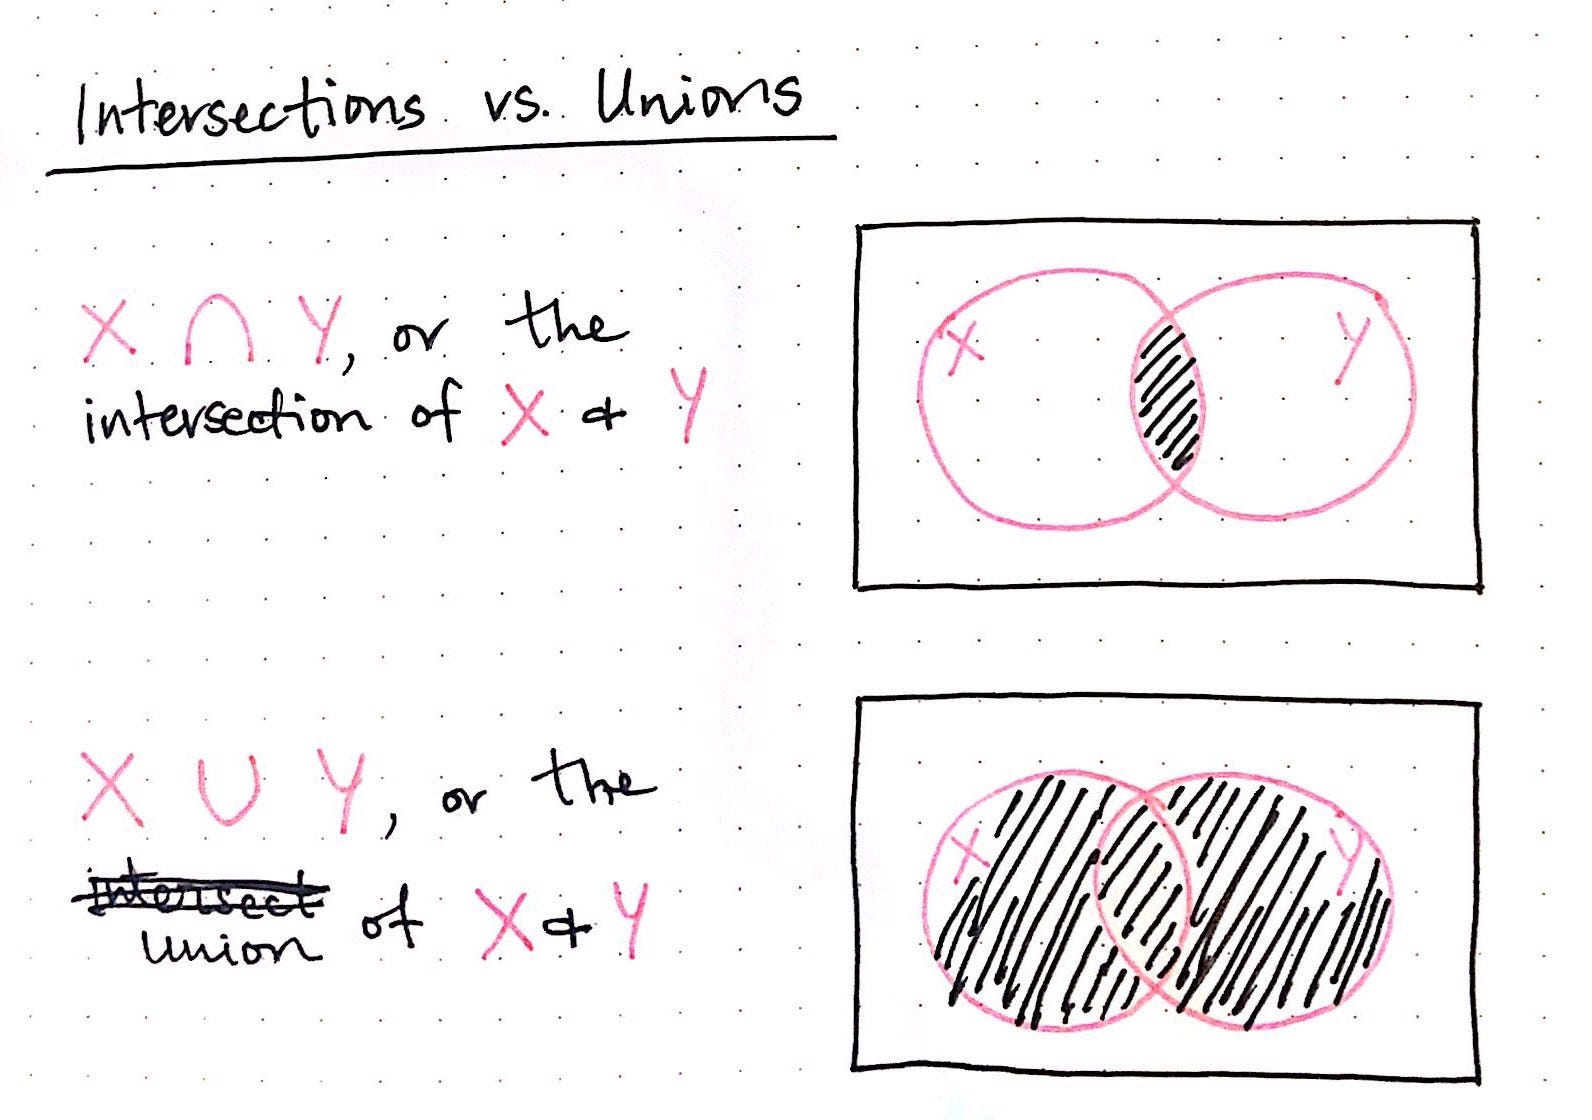 Intersections vs. Unions
X ∩ Y, or the
intersection of X & Y
X Y
X ∪ Y, or the
intersect
union of X & Y
X Y